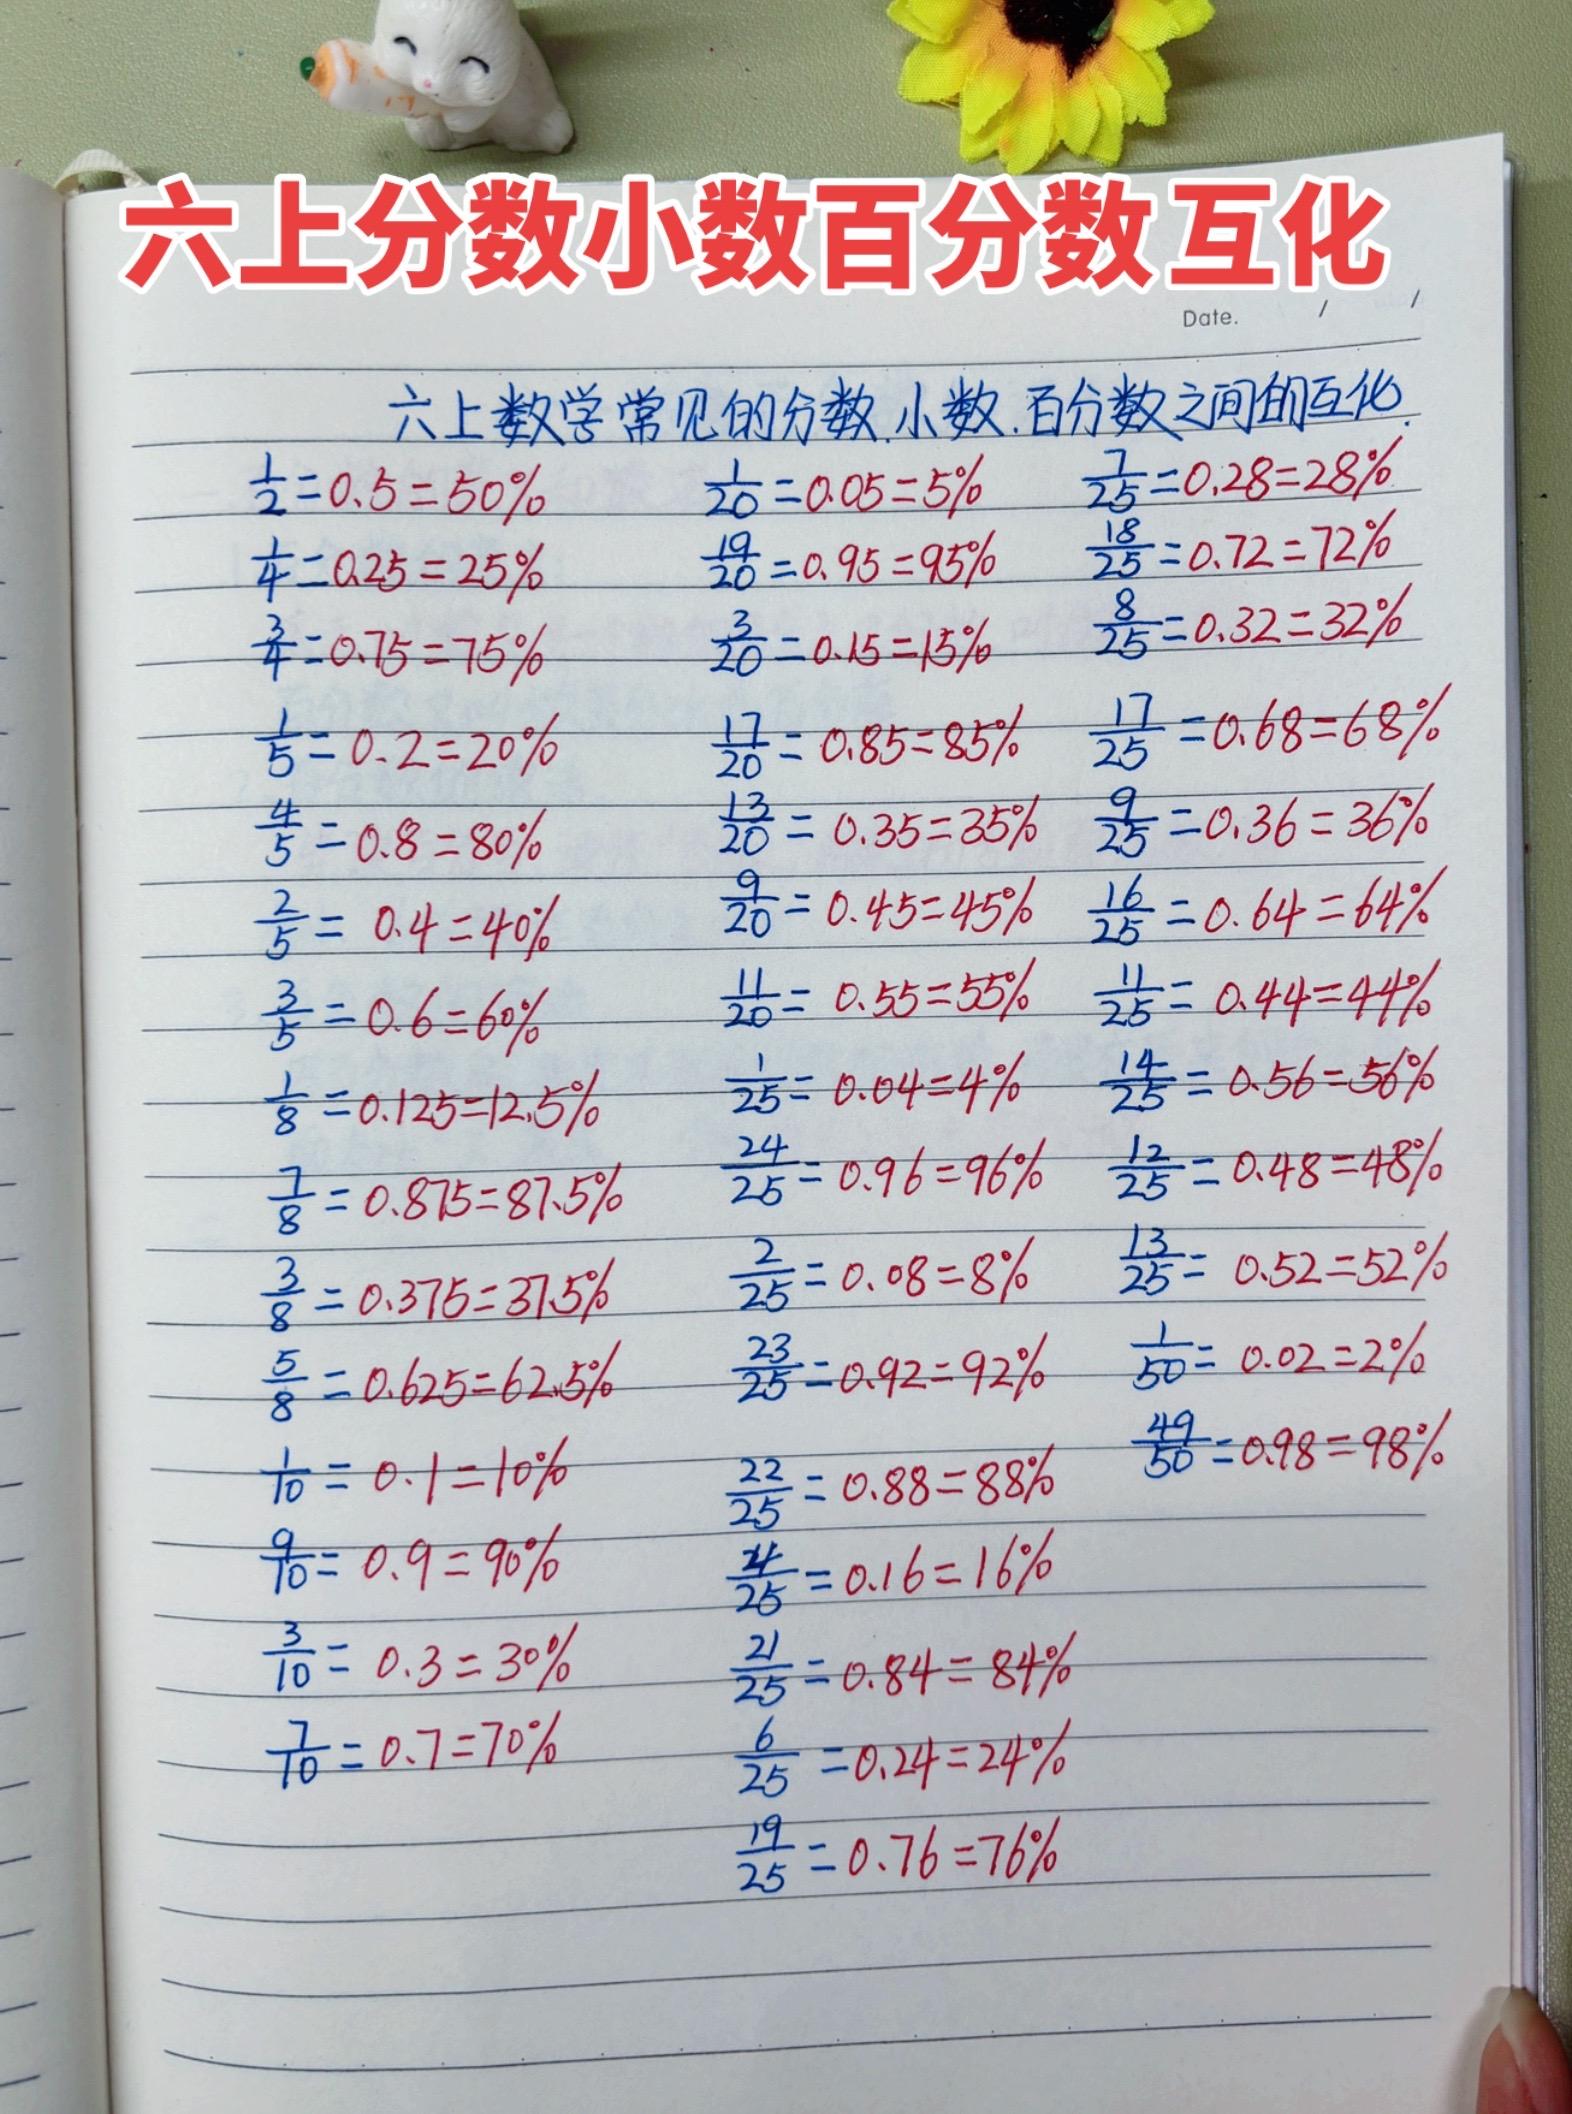 六上分数小数百分数互化
Date. / /
六上数学常见的分数.小数.百分数之间的互化.
1/2=0.5=50% 1/20=0.05=5% 7/25=0.28=28%
1/4=0.25=25% 19/20=0.95=95% 18/25=0.72=72%
3/4=0.75=75% 3/20=0.15=15% 8/25=0.32=32%
1/5=0.2=20% 17/20=0.85=85% 17/25=0.68=68%
4/5=0.8=80% 13/20=0.35=35% 9/25=0.36=36%
2/5=0.4=40% 9/20=0.45=45% 16/25=0.64=64%
3/5=0.6=60% 11/20=0.55=55% 11/25=0.44=44%
1/8=0.125=12.5% 1/25=0.04=4% 14/25=0.56=56%
7/8=0.875=87.5% 24/25=0.96=96% 12/25=0.48=48%
3/8=0.375=37.5% 2/25=0.08=8% 13/25=0.52=52%
5/8=0.625=62.5% 23/25=0.92=92% 1/50=0.02=2%
1/10=0.1=10% 22/25=0.88=88% 49/50=0.98=98%
9/10=0.9=90% 4/25=0.16=16%
3/10=0.3=30% 21/25=0.84=84%
7/10=0.7=70% 6/25=0.24=24%
19/25=0.76=76%